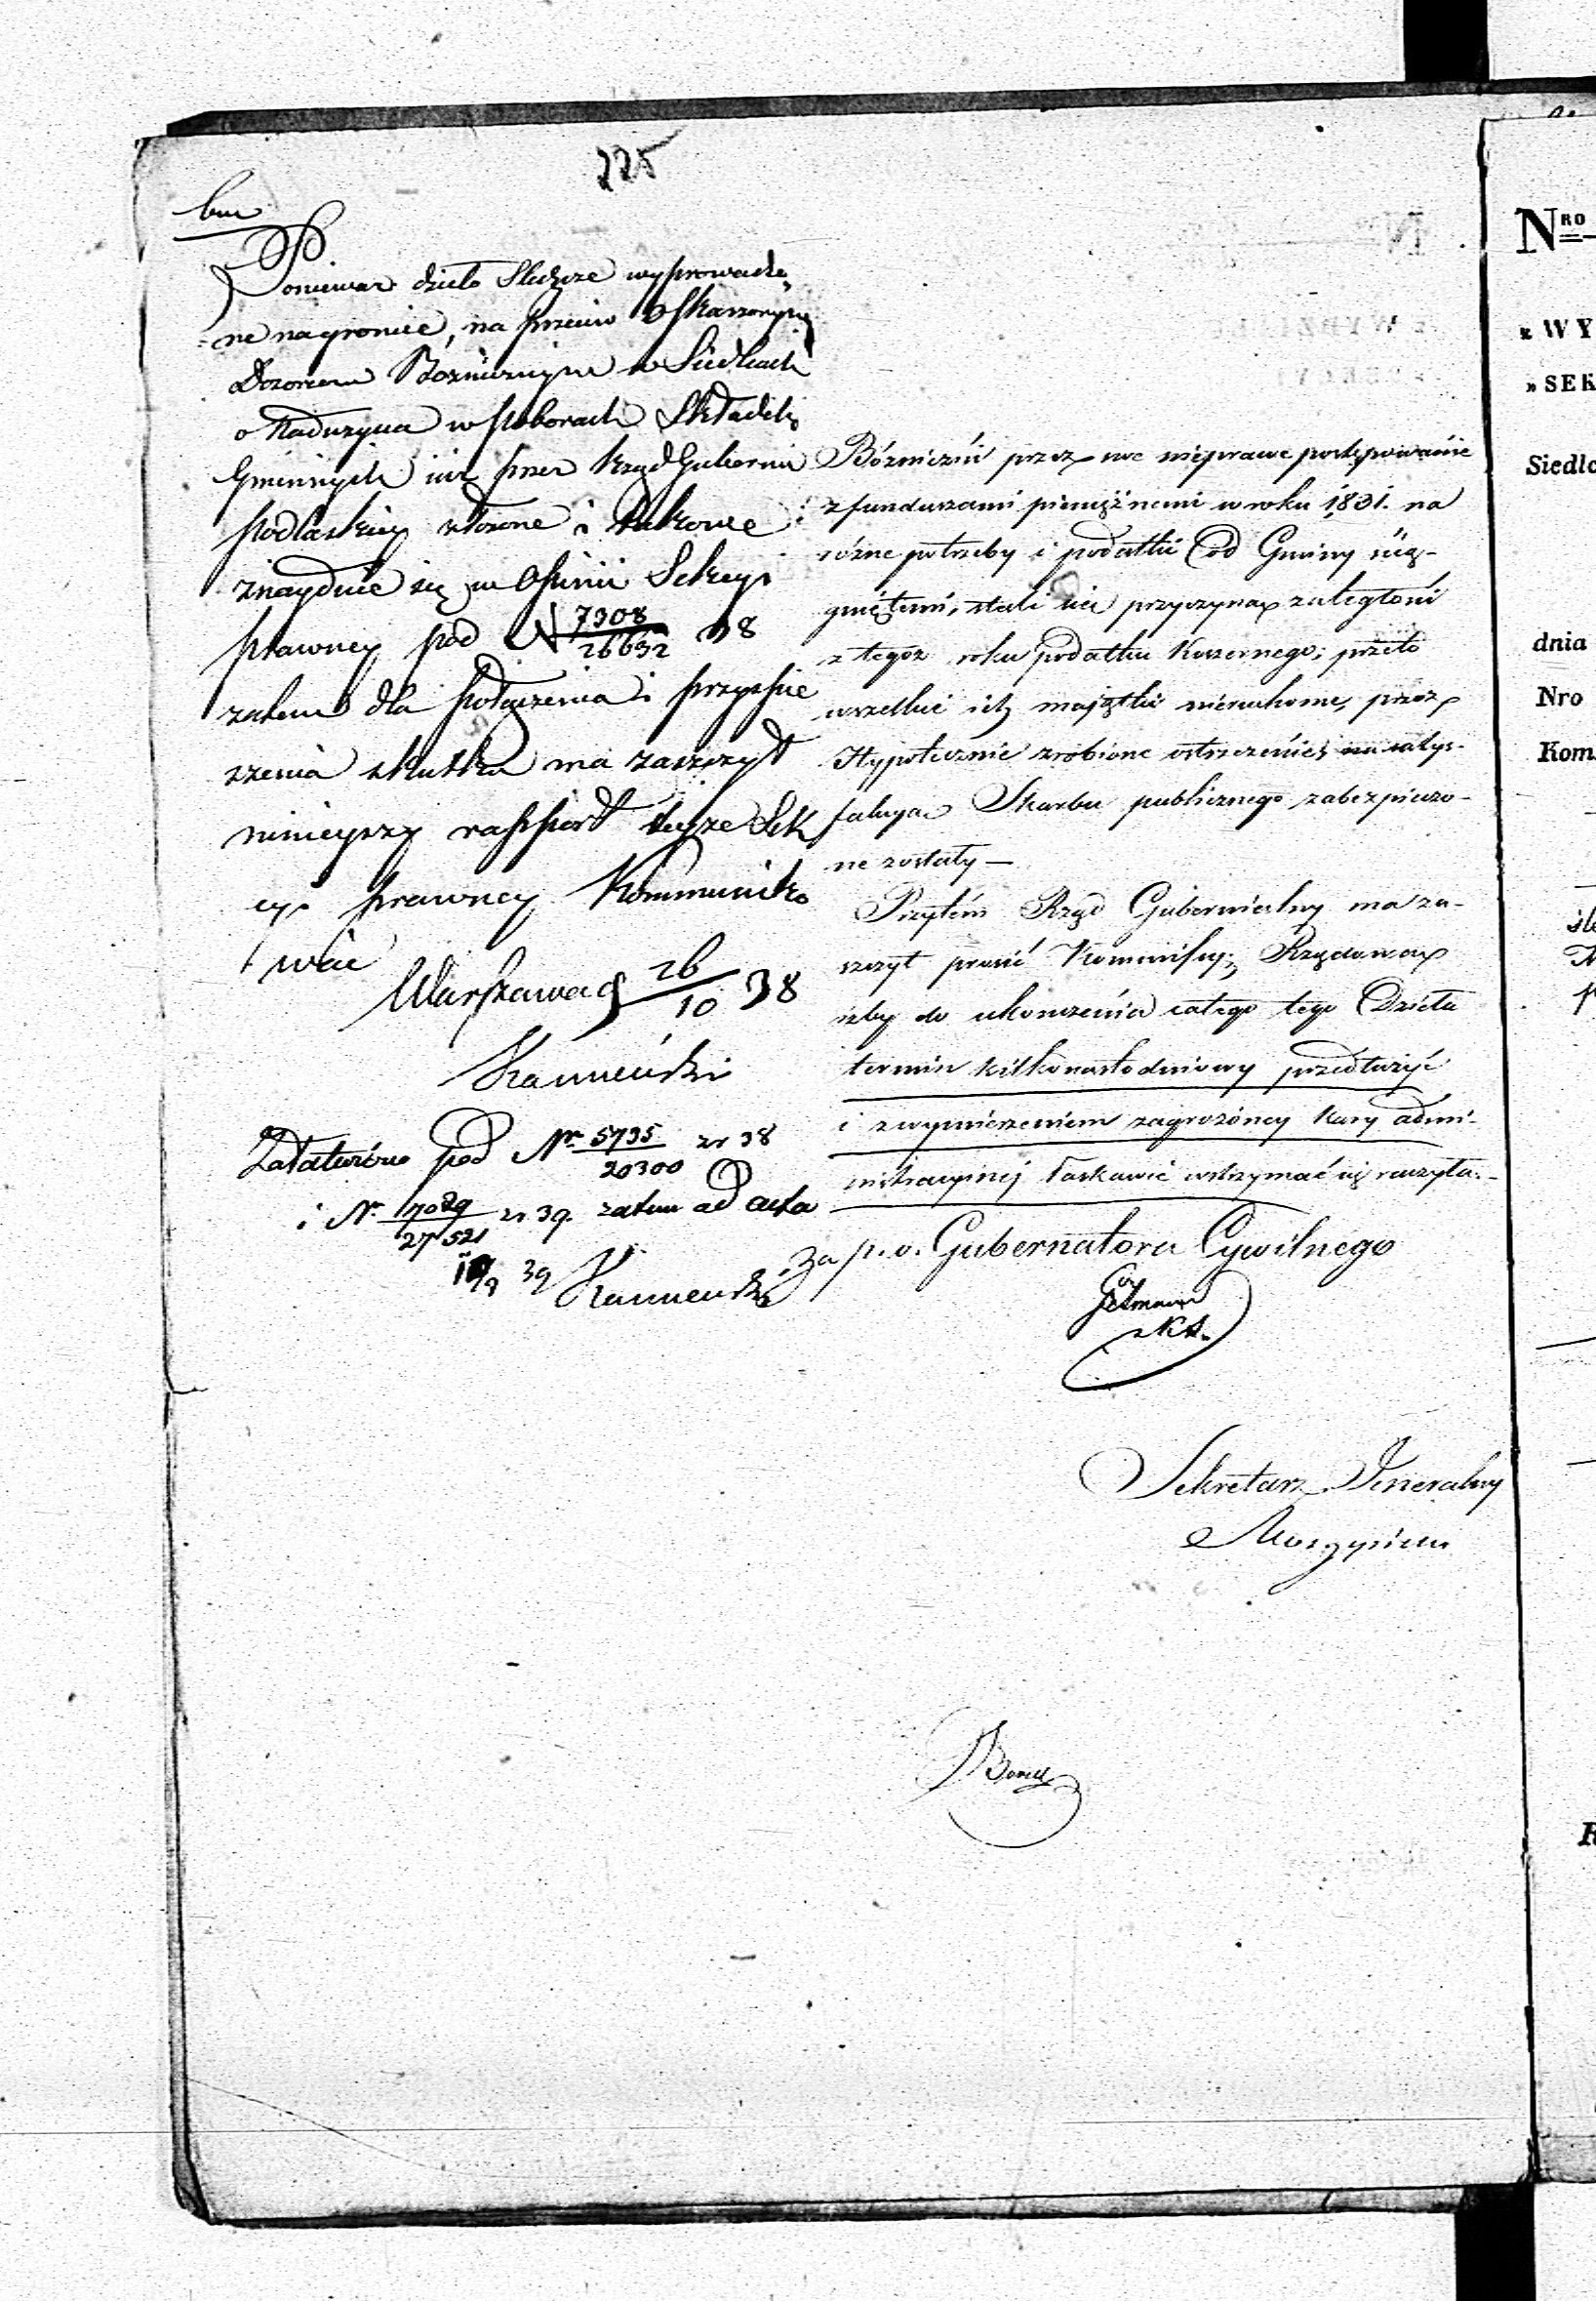 225
bm
Poniewaz dzieło Sledcze wyprowadzo
ne na gròncie, na przeciw oskarzonym
Dozorcom Bożnicznym w Siedlcach
o Nadużycia w poborach Składek
Gminnych już przez Rząd Gubernii
Podlaskiey złożone i takowe
znayduie się w Opinii Sekcyi
prawney pod N 7308/26632 38
zatem dla połączenia i przyspie
szenia skutku ma zaszczyt
ninieyszy rapport teyże Sek
cyi prawney Kommuniko
wać
Warszawa d 26/10 38
Kamieński
Załatwiono pod Nr. 5735/20300 zr 38
i Nr. 7029/27521 zr 39. zatem ad acta
39 Kamieński
Bóżniczni przez swe nieprawe postępowanie
z funduszami pieniężnemi w roku 1831. na
różne potrzeby i podatki od Gminy ścią-
gniętemi, stali się przyczyną zaległości
z tegoż roku podatku Koszernego; przeto
wszelkie ich majątki nieruchome, przez
Hypotecznie zrobione ostrzeżenie, na satys-
fakcyą Skarbu publicznego zabezpieczo-
ne zostały —
Przytém Rząd Gubernialny ma za-
szczyt prosić Kommissyą Rządową
iżby do ukończenia całego tego Dzieła
termin kilkonastodniowy przedłużyć
i z wymierzeniem zagrożóney kary admi-
nistracyinéj łaskawie wstrzymać się raczyła.-
Za p. o. Gubernatora Cywilnego
Sekretarz Jeneralny
NRO
» WY
» SEK
Siedlc
dnia
Nro
Kom.